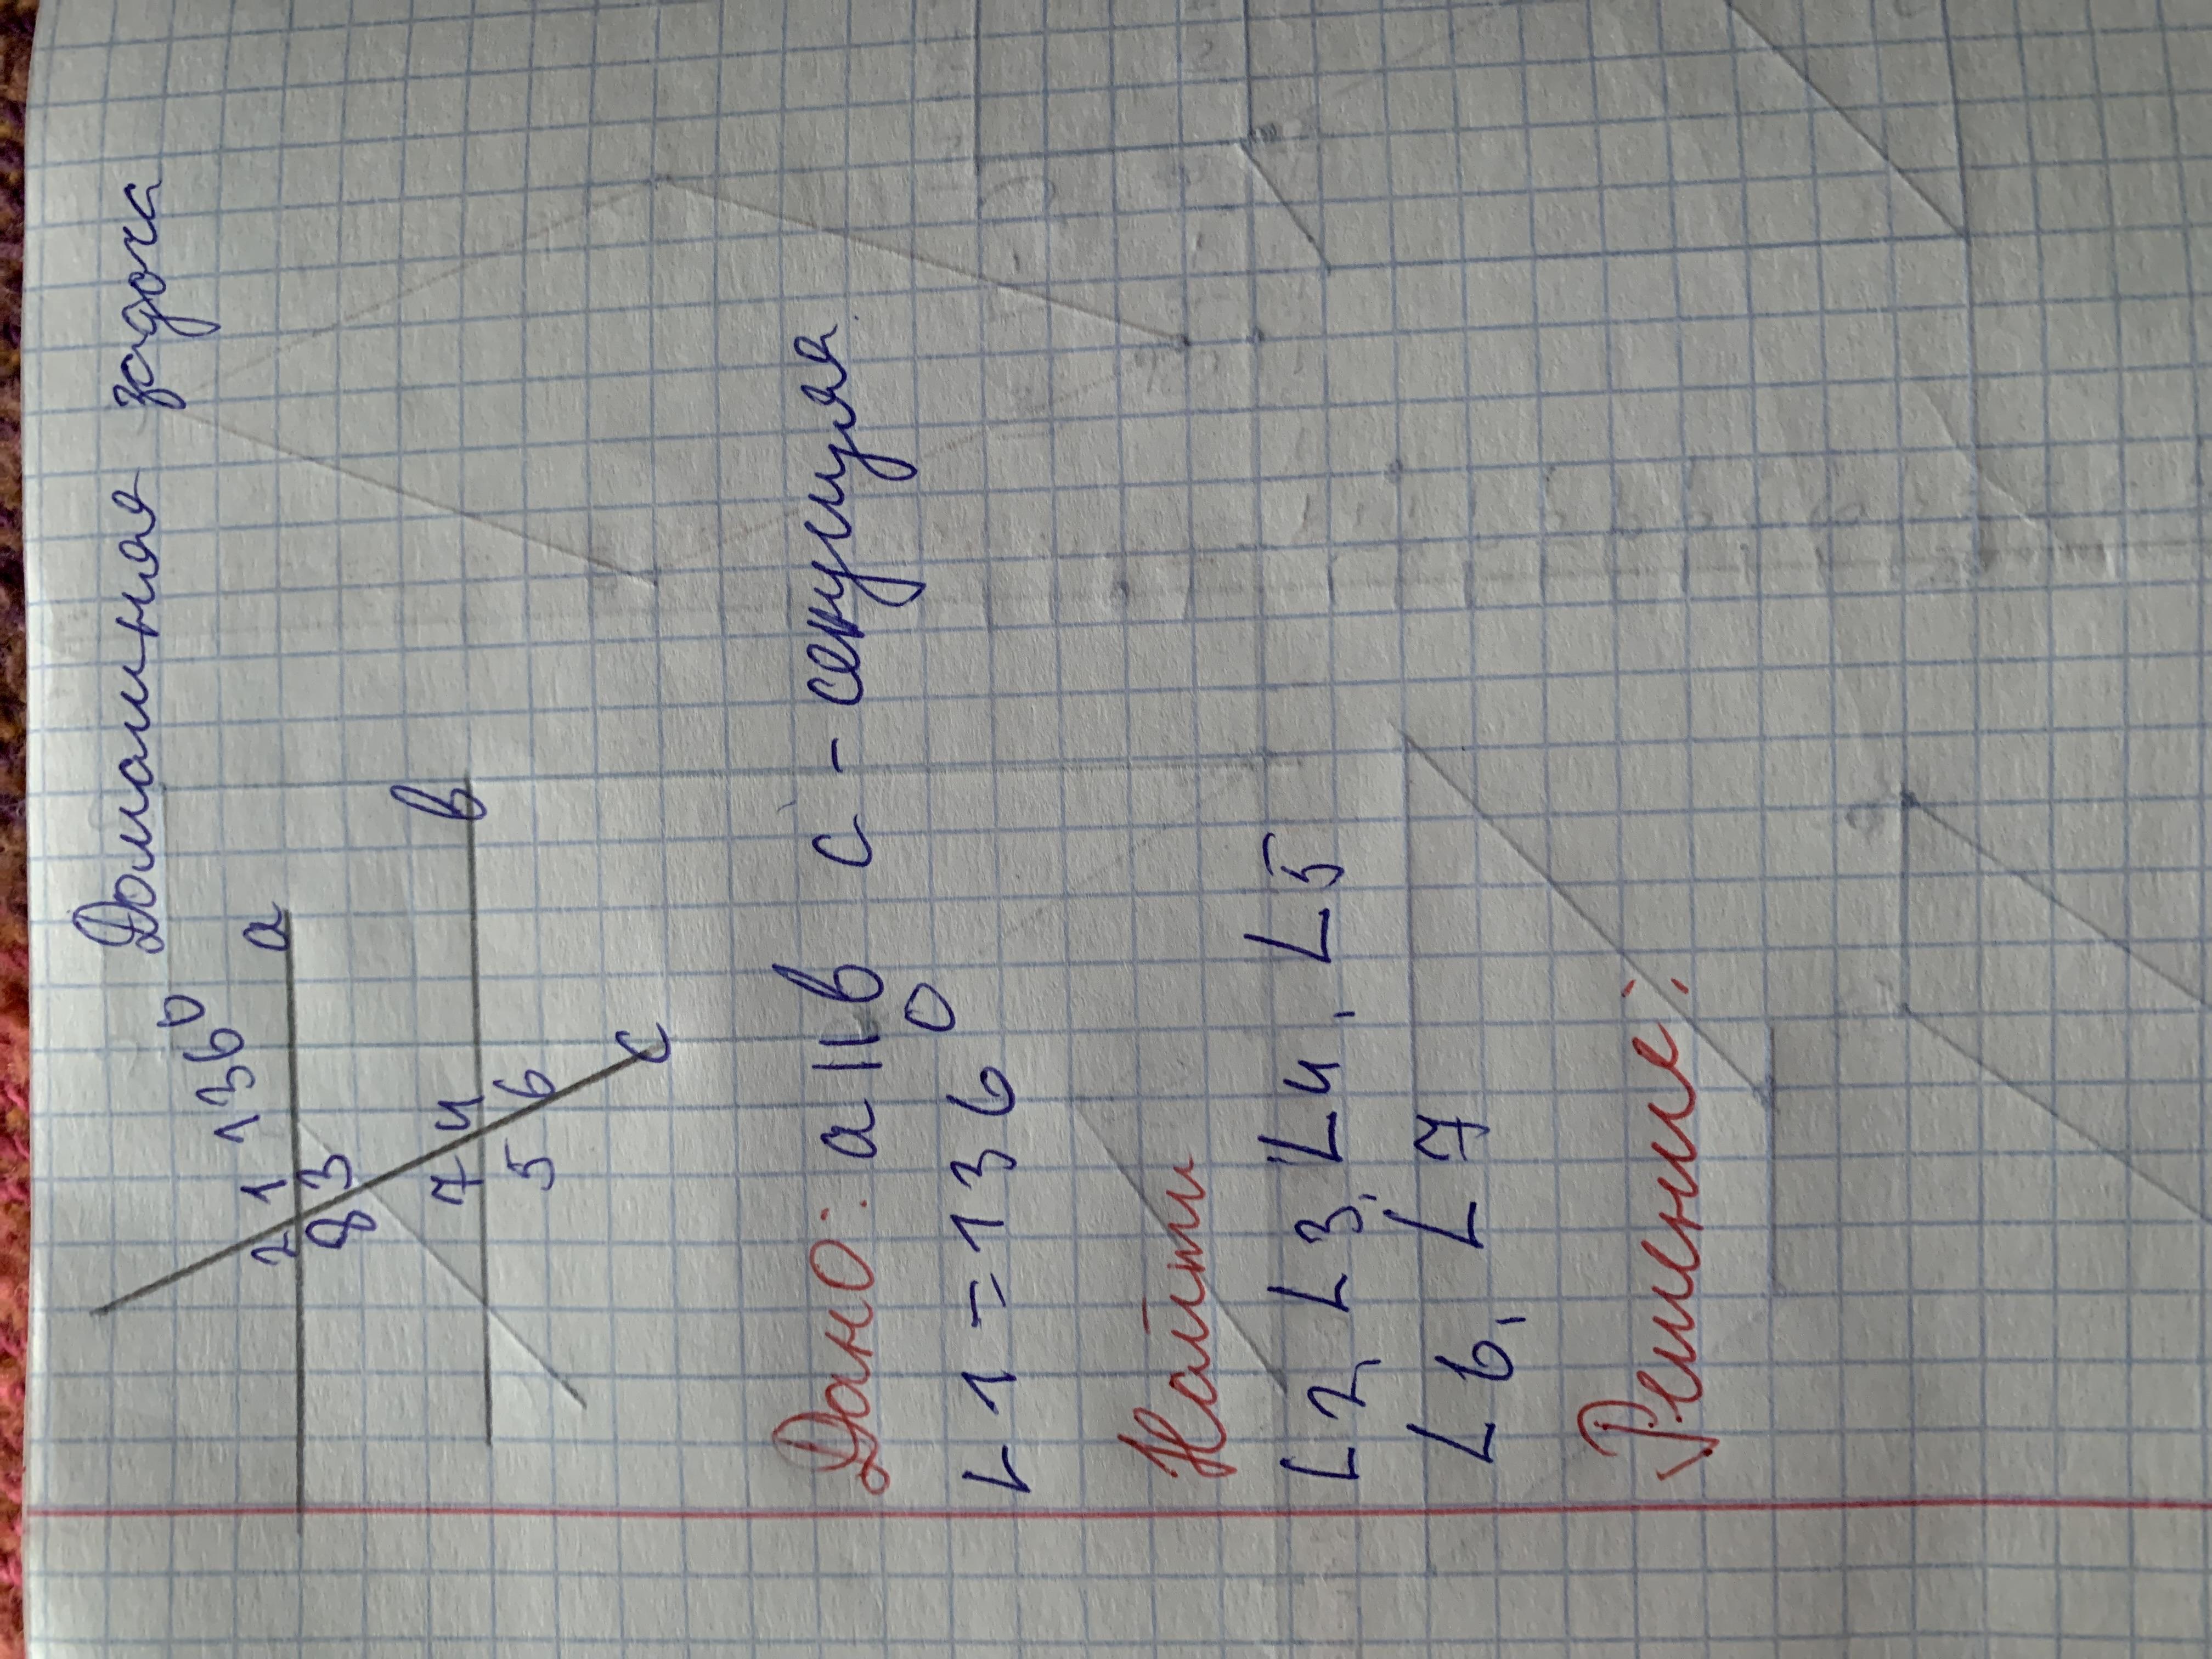 Домашняя задача
136⁰
a
2 1
8 3
в
7 4
5 6
c
Дано: a || в c - секущая
∠1 = 136⁰
Найти
∠2, ∠3, ∠4, ∠5
∠6, ∠7
Решение: